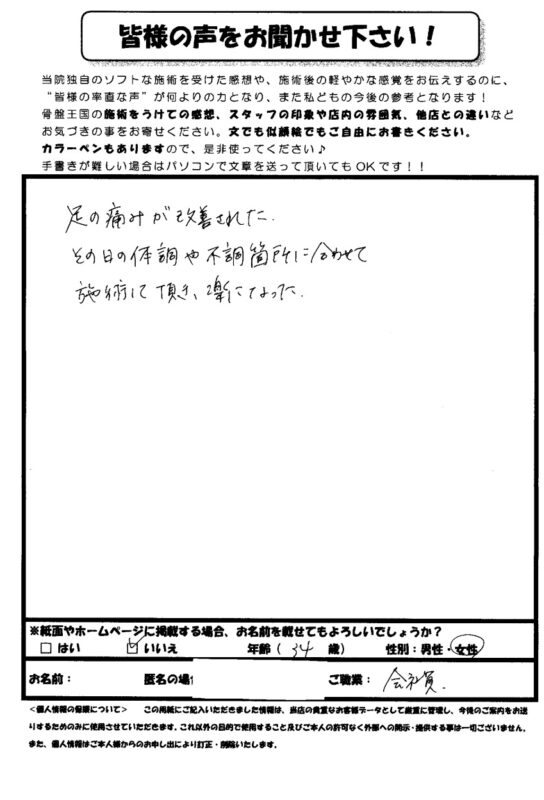 皆様の声をお聞かせ下さい！
当院独自のソフトな施術を受けた感想や、施術後の軽やかな感覚をお伝えするのに、
“皆様の率直な声”が何よりの力となり、また私どもの今後の参考となります！
骨盤王国の施術をうけての感想、スタッフの印象や店内の雰囲気、他店との違いなど
お気づきの事をお寄せください。文でも似顔絵でもご自由にお書きください。
カラーペンもありますので、是非使ってください♪
手書きが難しい場合はパソコンで文章を送って頂いてもOKです！！
足の痛みが改善された。
その日の体調や不調箇所に合わせて
施術して頂き、楽になった。
※紙面やホームページに掲載する場合、お名前を載せてもよろしいでしょうか？
はい いいえ 年齢（34 歳） 性別：男性・女性
お名前： 匿名の場 ご職業： 会社員
＜個人情報の保護について＞ この用紙にご記入いただきました情報は、当店の貴重なお客様データとして厳重に管理し、今後のご案内をお送
りするためのみに使用させていただきます。これ以外の目的で使用すること及びご本人の許可なく外部への開示・提供する事は一切ございません。
また、個人情報はご本人様からのお申し出により訂正・削除いたします。